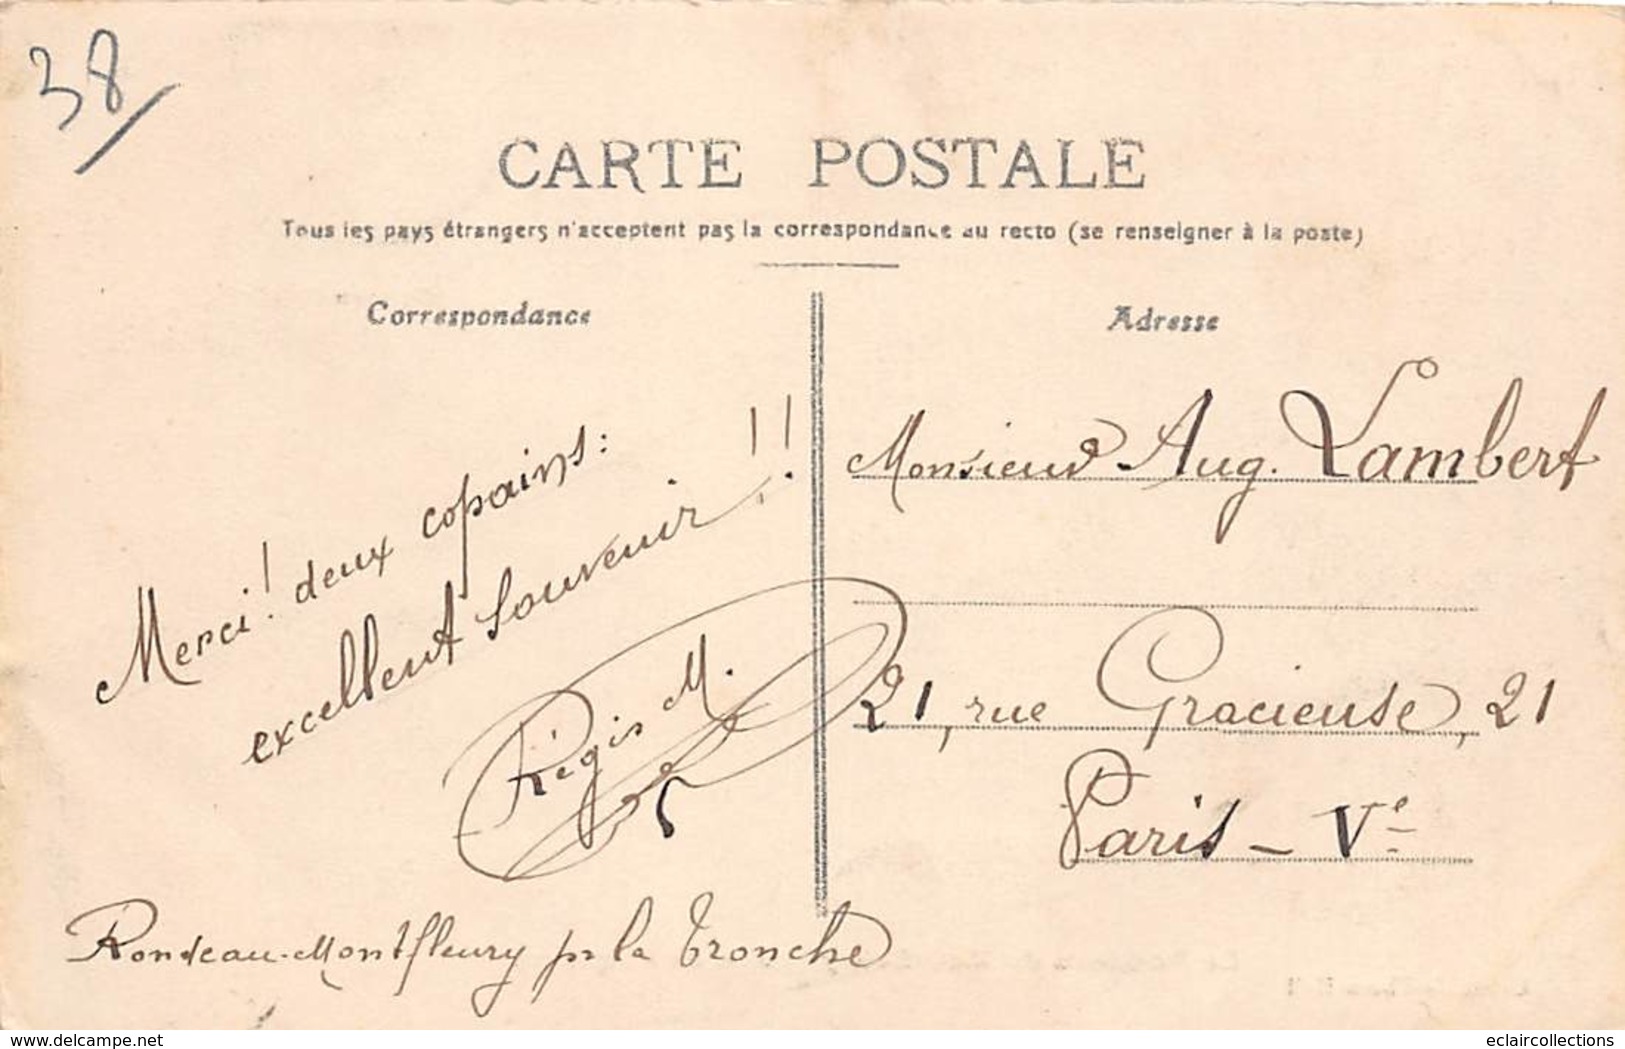 38
CARTE POSTALE
Tous les pays étrangers n'acceptent pas la correspondance au recto (se renseigner à la poste)
Correspondance
Merci! deux copains:
excellent souvenir!!
Régis M.
Rondeau-Montfleury pr la Tronche
Adresse
Monsieur Aug. Lambert
21, rue Gracieuse, 21
Paris - Ve
www.delcampe.net
eclaircollections